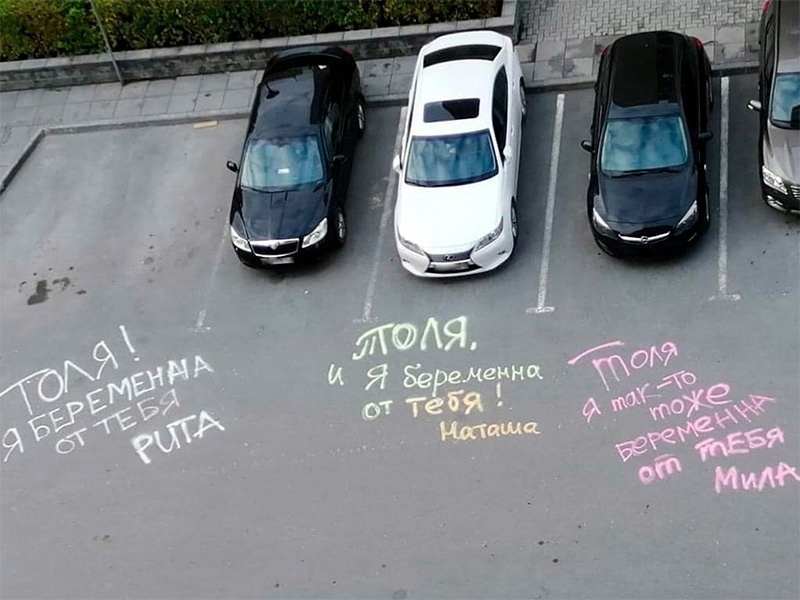 ТОЛЯ!
Я БЕРЕМЕННА
ОТ ТЕБЯ
РИТА
ТОЛЯ,
и Я беременна
от тебя!
Наташа
Толя
я так-то
тоже
БЕРЕМЕННА
от ТЕБЯ
МИЛА